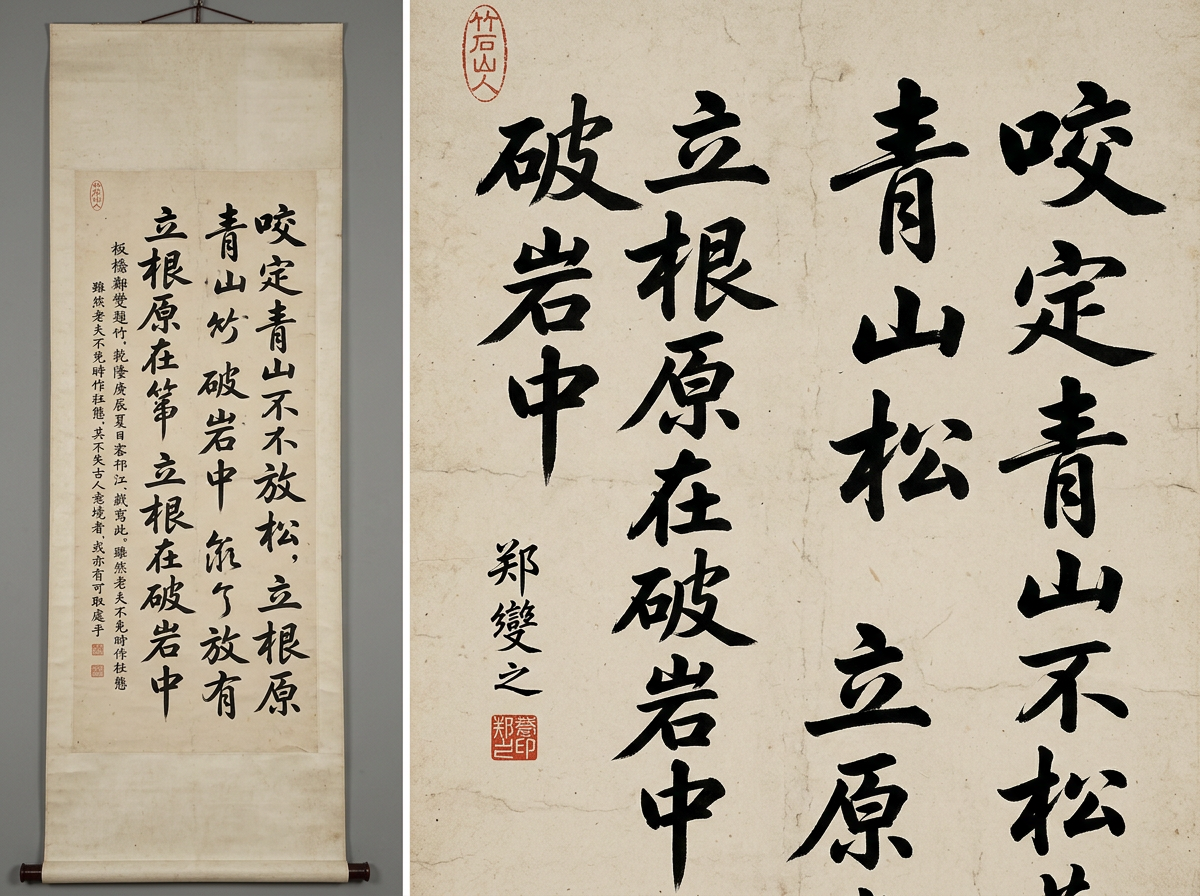 咬定青山不不放松，立根原
青山竹 破岩中 放有
立根原在第 立根在破岩中
板橋鄭燮題竹，乾隆庚辰夏日客邗江，戲寫此。雖然老夫不免時作狂態
雖然老夫不免時作狂態，其不失古人意境者，或亦有可取處乎
竹石山人
咬定青山不松
青山松 立原
立根原在破岩中
破岩中
郑燮之